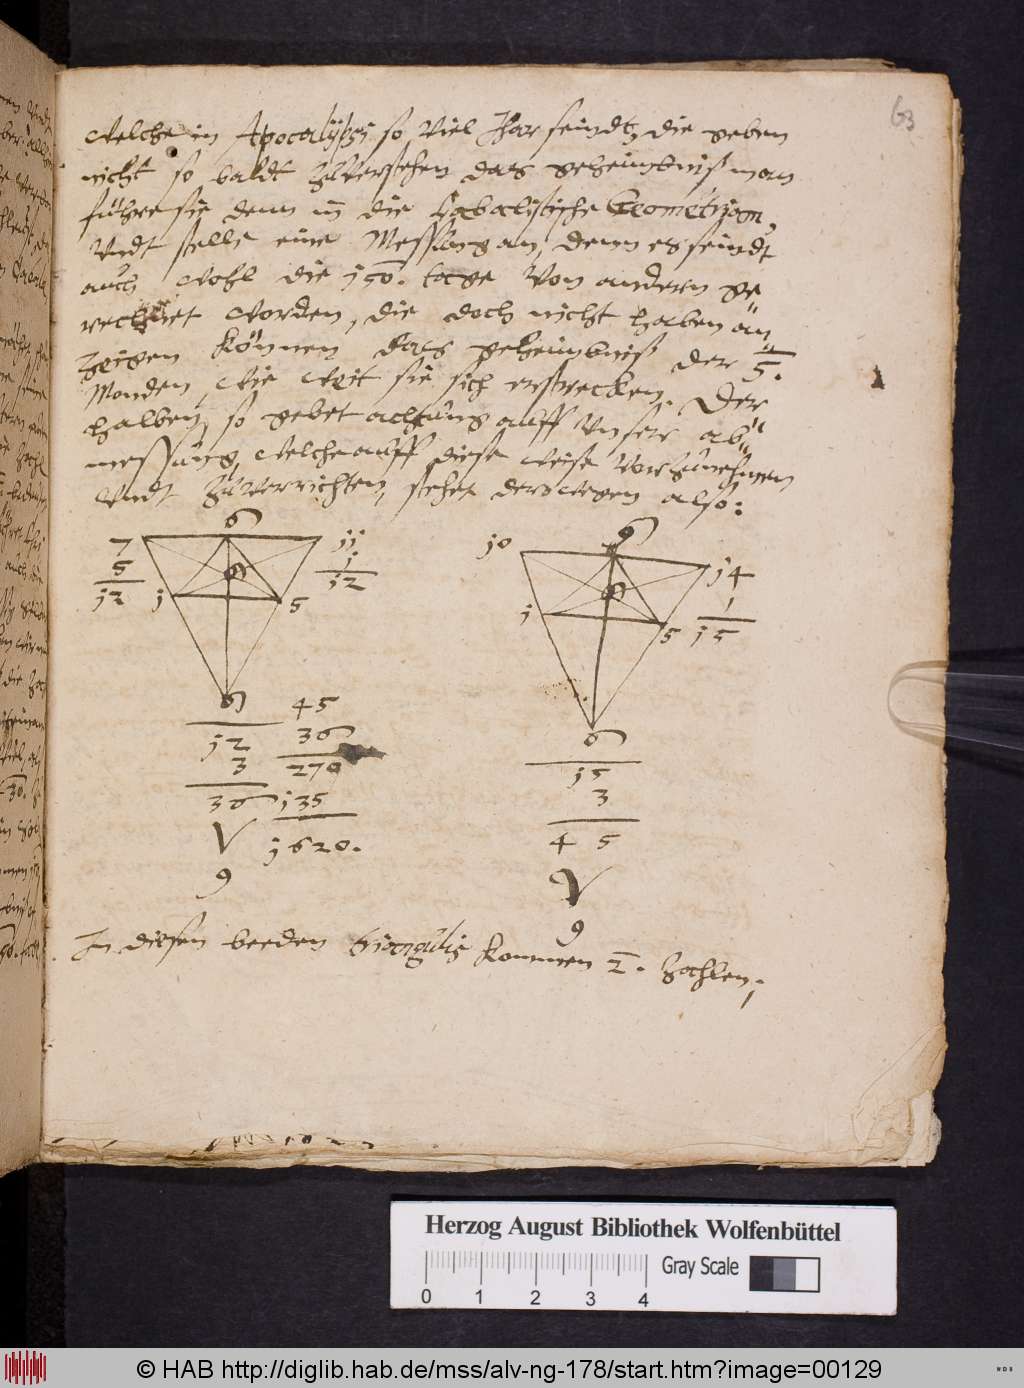 63
welche in Apocalijpsi so viel Jhar seindt, die geben
nicht so baldt zuuerstehen das geheimbniß man
führe sie denn in die Cabalistische Geometriam,
Vndt stelle eine Messung an, denn es seindt
auch wohl die j50. tage von andern ge
rechnet worden, die doch nicht haben an
zeigen können das geheimbniß der 5.
Monden, wie weit sie sich erstrecken. Der
halben, so gebet achtung auff vnser ab
messung, welche auff diese weise vorzunehmen
Vndt zuuerrichten, stehet derwegen also:
7 6 jj
5 6 j
j2 j 5 j2
6
j2
3
36
V
9
45
36
270
j35
j620.
j0 9 j4
j 6 5 1
j5
6
j5
3
45
V
9
In diesen beeden triangulis kommen 2. zahlen,
Herzog August Bibliothek Wolfenbüttel
Gray Scale
0 1 2 3 4
© HAB http://diglib.hab.de/mss/alv-ng-178/start.htm?image=00129